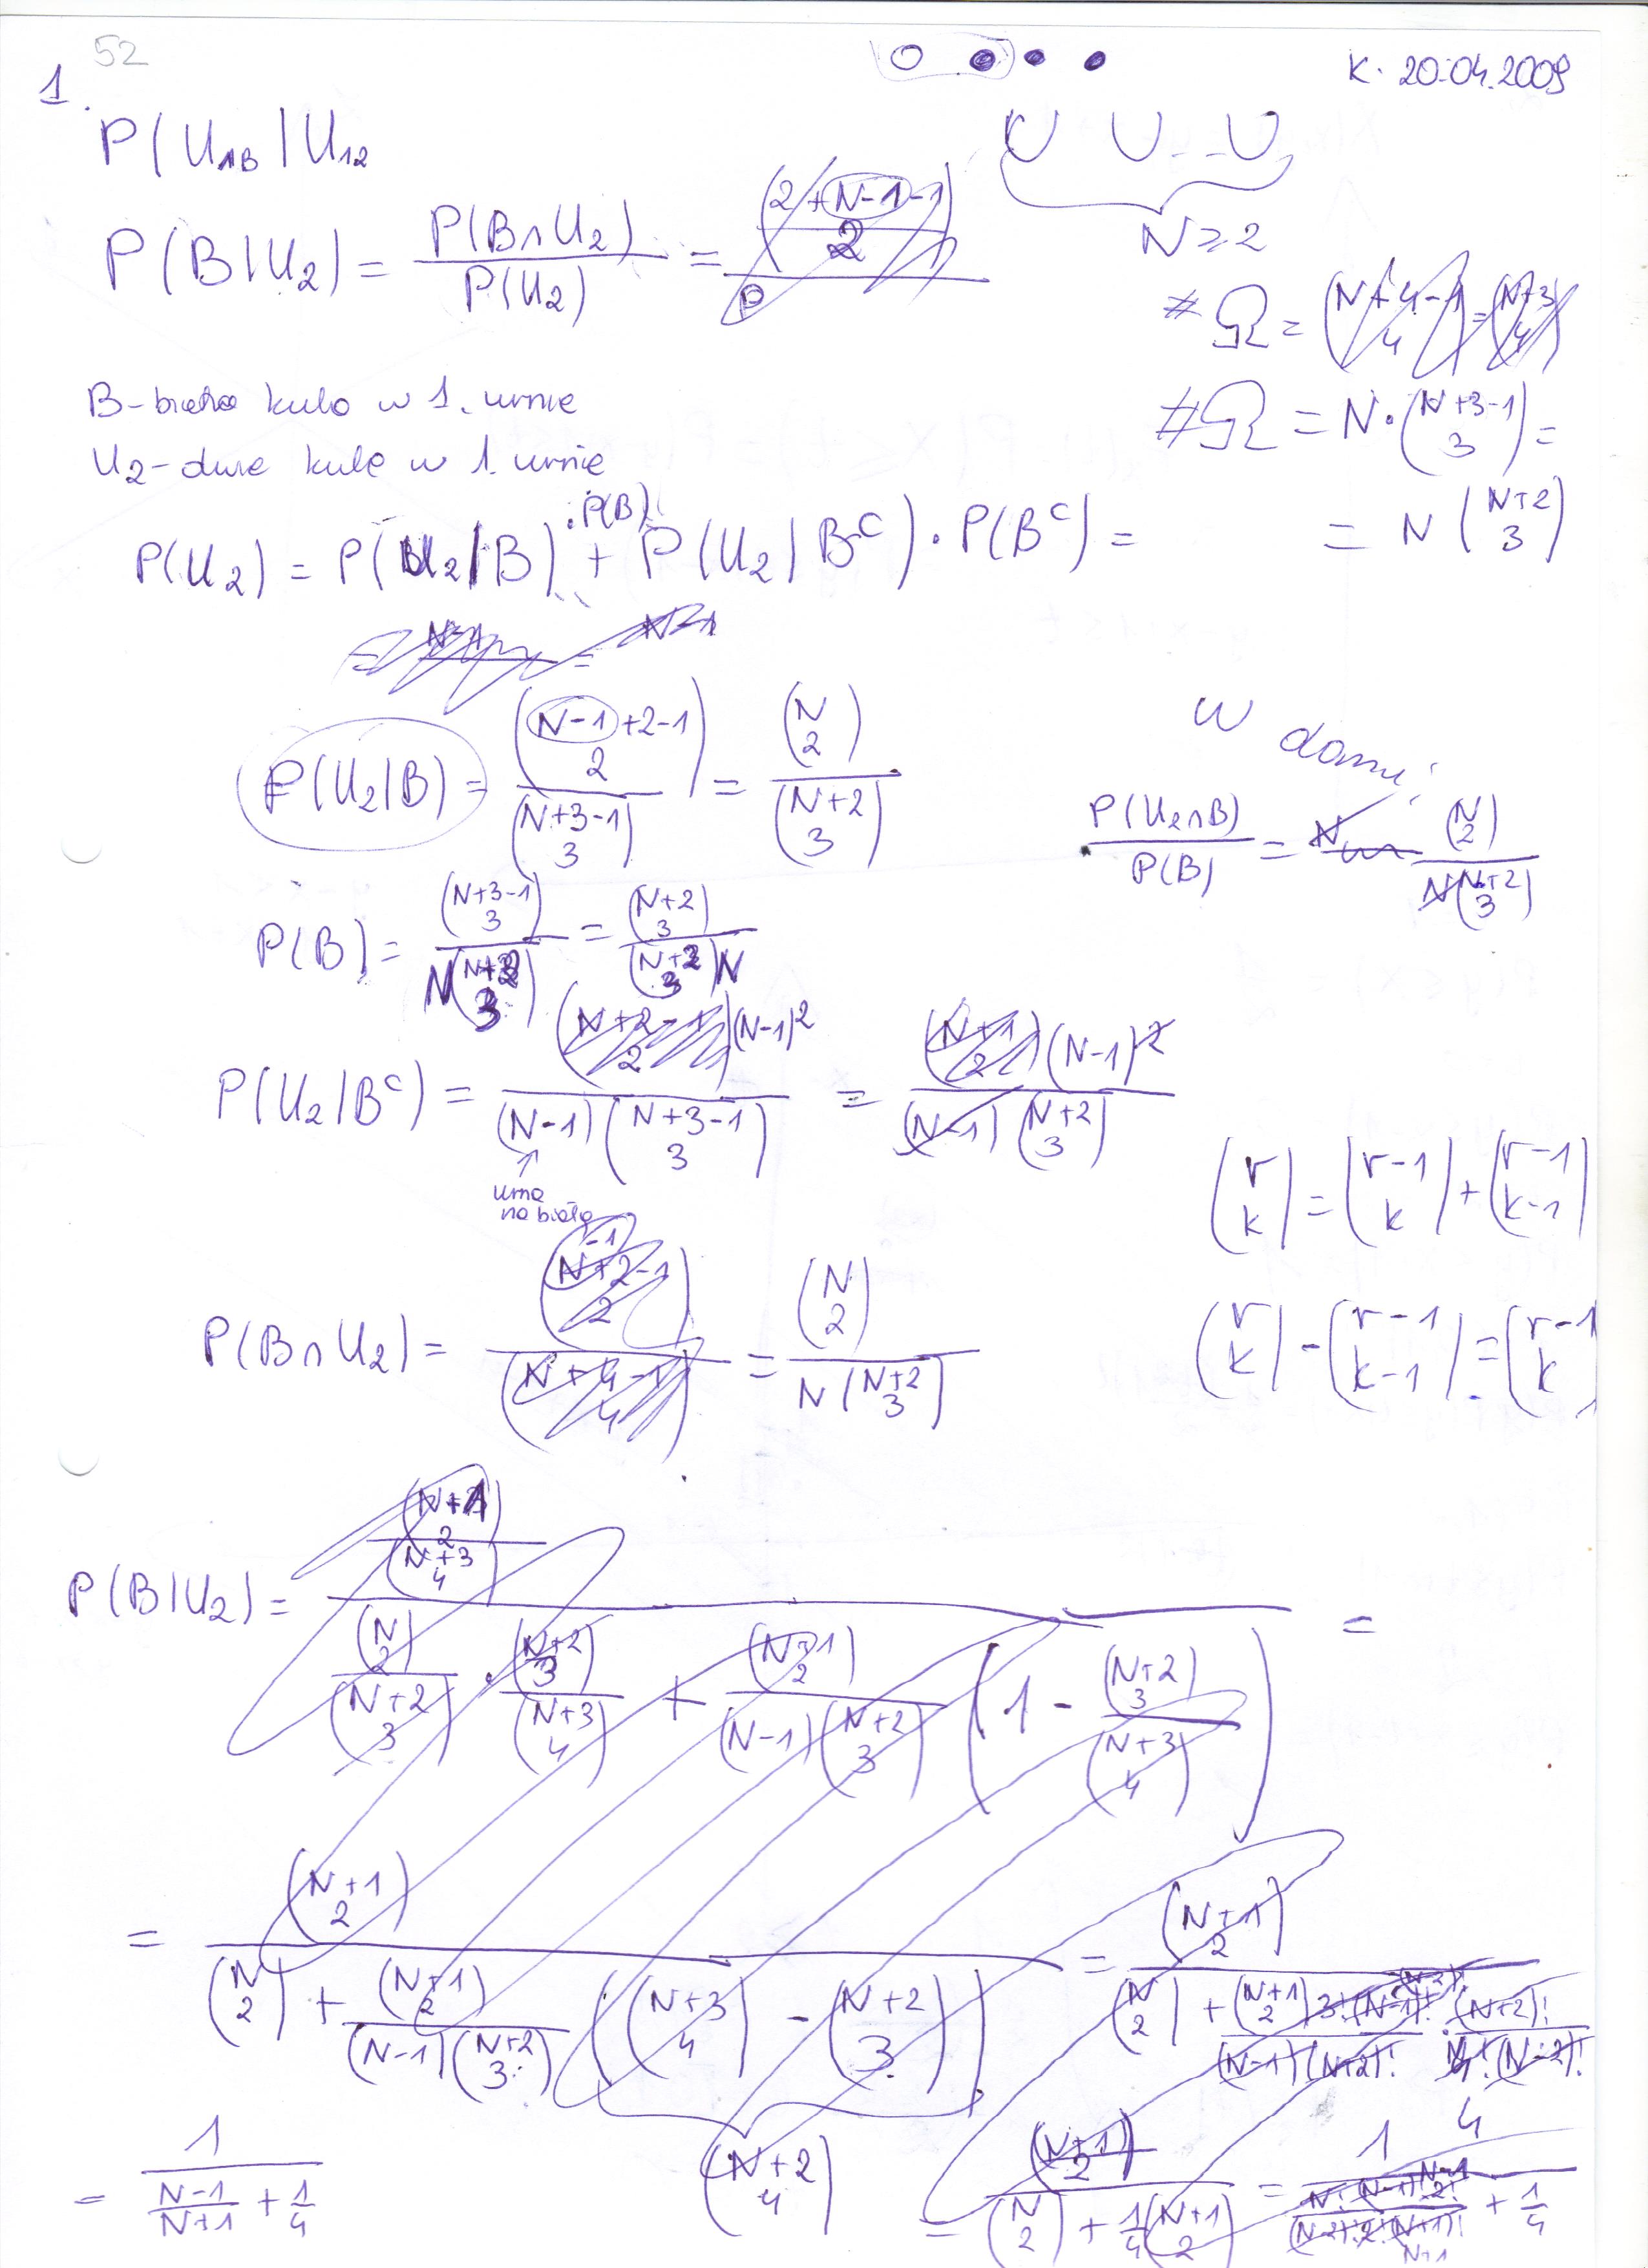 52
K. 20.04.2009
1.
P(U₁B | U₁₂
U U -- U
N ≥ 2
P(B|U₂) = P(B∩U₂) / P(U₂) = (2+N-1-1 \n 2) / P
#Ω = (N+4-1 \n 4) = (N+3 \n 4)
B - biała kula w 1. urnie
#Ω = N · (N+3-1 \n 3) =
U₂ - dwie kule w 1. urnie
= N (N+2 \n 3)
P(U₂) = P(U₂|B) · P(B) + P(U₂|Bᶜ) · P(Bᶜ) =
P(U₂|B) = (N-1+2-1 \n 2) / (N+3-1 \n 3) = (N \n 2) / (N+2 \n 3)
W domu:
P(U₂∩B) / P(B) = (N \n 2) / N(N+2 \n 3)
P(B) = (N+3-1 \n 3) / N(N+2 \n 3) = (N+2 \n 3) / (N+2 \n 3)N
P(U₂|Bᶜ) = (N+2-1 \n 2) (N-1)² / (N-1)(N+3-1 \n 3) = (N+1 \n 2) (N-1)² / (N-1)(N+2 \n 3)
↑
urna
na białą
(r \n k) = (r-1 \n k) + (r-1 \n k-1)
P(B∩U₂) = (N-1+2-1 \n 2) / (N+4-1 \n 4) = (N \n 2) / N(N+2 \n 3)
(r \n k) - (r-1 \n k-1) = (r-1 \n k)
P(B|U₂) = (N+1 \n 2) / (N+3 \n 4) / (N \n 2) / (N+2 \n 3) · (N+2 \n 3) / (N+3 \n 4) + (N+1 \n 2) / (N-1)(N+2 \n 3) (1 - (N+2 \n 3) / (N+3 \n 4)) =
= (N+1 \n 2) / (N \n 2) + (N+1 \n 2) / (N-1)(N+2 \n 3) ((N+3 \n 4) - (N+2 \n 3)) = (N+1 \n 2) / (N \n 2) + (N+1 \n 2) 3!(N-1)! / (N-1)(N+2)! · (N+2)! / 4!(N-2)!
(N+2 \n 4)
= (N+1 \n 2) / (N \n 2) + 1/4 (N+1 \n 2) = 1 / + 1/4
= 1 / (N-1)/(N+1) + 1/4